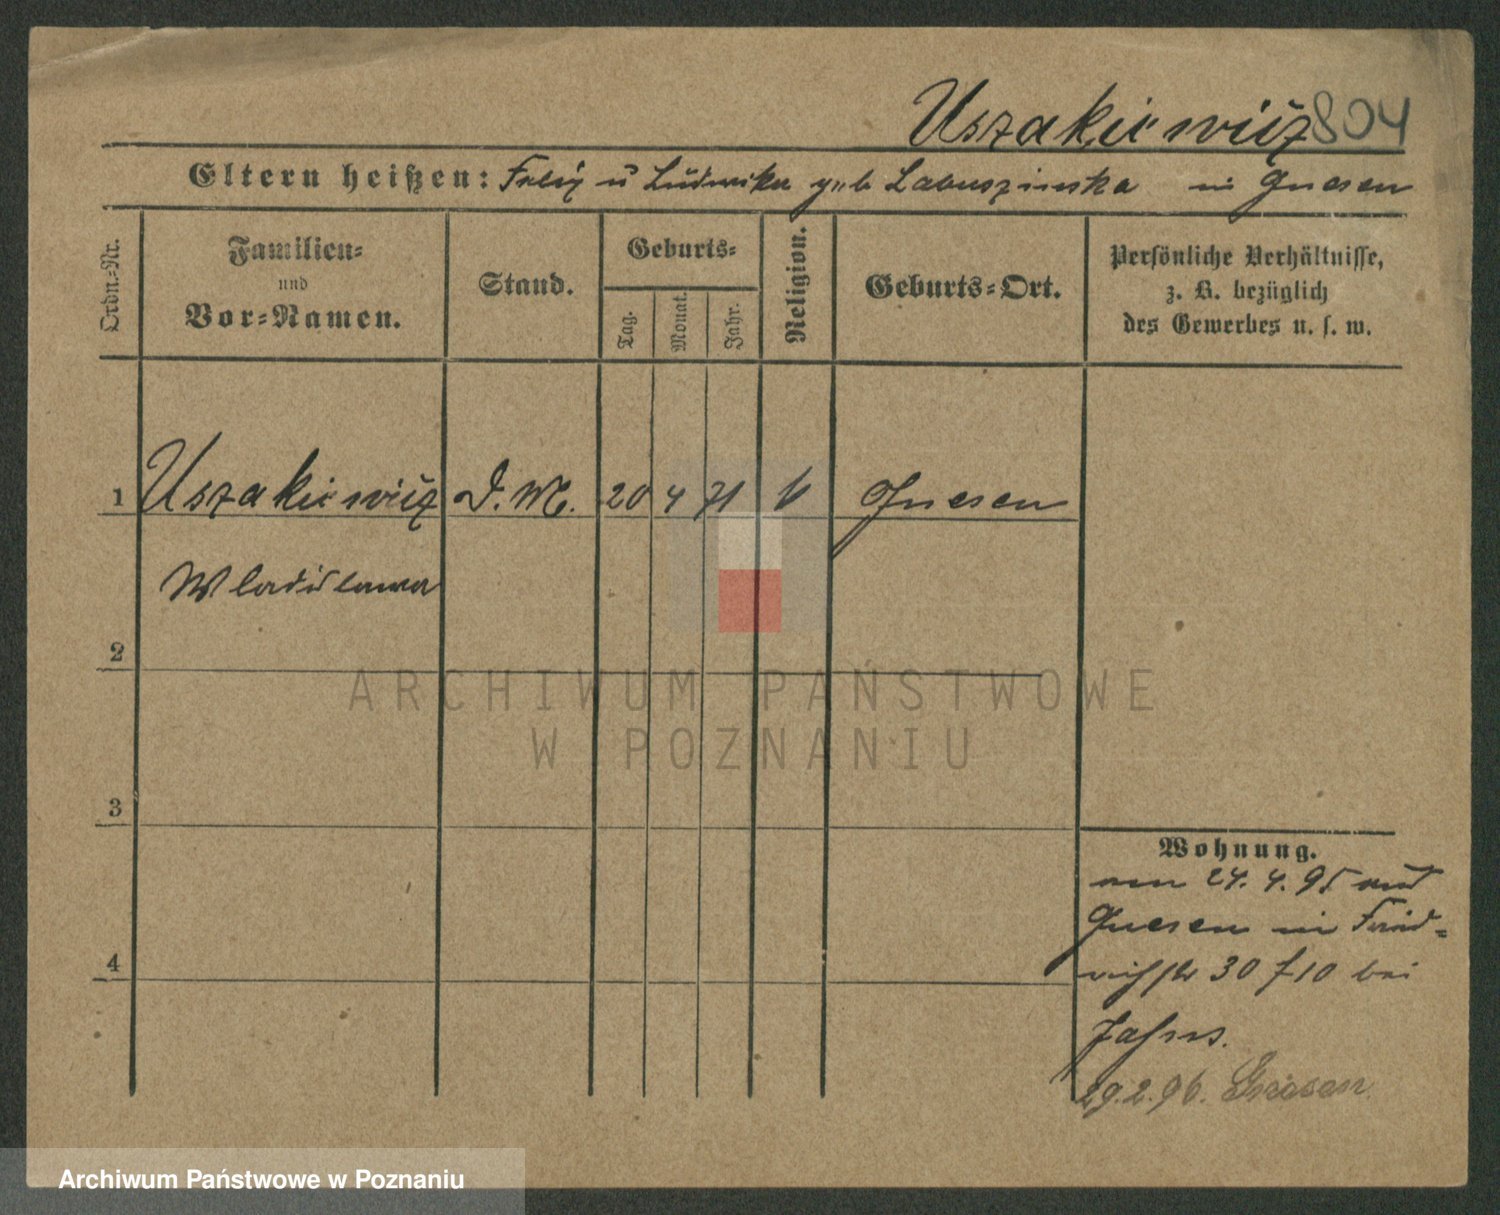 Uszakiewicz 804
Eltern heißen: Felix u Ludwika geb Labuszinska in Gnesen
Ordn.-Nr.
Familien-
und
Vor-Namen.
Stand.
Geburts-
Tag.
Monat.
Jahr.
Religion.
Geburts-Ort.
Persönliche Verhältnisse,
z. B. bezüglich
des Gewerbes u. s. w.
1 Uszakiewicz D. M. 20 4 71 k Gnesen
Wladislawa
2
3
4
Wohnung.
am 24. 4. 95 aus
Gnesen in Fried-
richstr 30 f 10 bei
Jahns.
29.2.96. Gnesen
ARCHIWUM PAŃSTWOWE
W POZNANIU
Archiwum Państwowe w Poznaniu